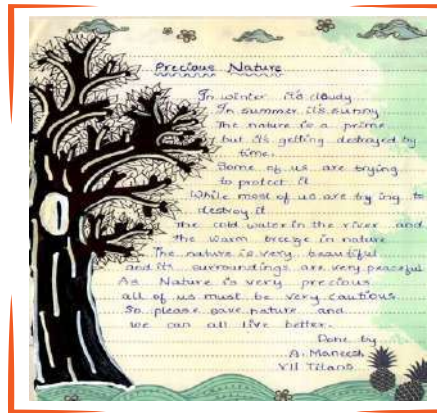 Precious Nature
In winter it's cloudy
In summer it's sunny
The nature is a prime
but it's getting destroyed by
time.
Some of us are trying
to protect it
While most of us are trying to
destroy it
The cold water in the river and
the warm breeze in nature
The nature is very beautiful
and its surroundings are very peaceful
As Nature is very precious
all of us must be very cautious
So please save nature and
we can all live better.
Done by
A. Maneesh
VII Titans